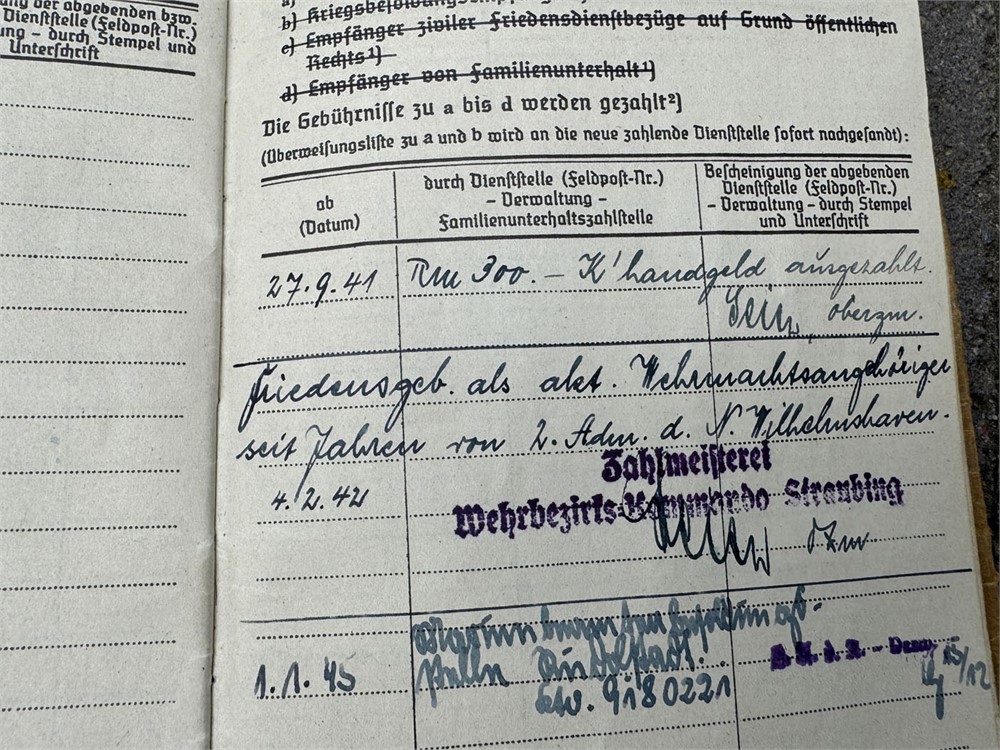 der abgebenden bzw.
Dienststelle (Feldpost-Nr.)
ung – durch Stempel und
Unterschrift
b) Kriegsbesoldungsempfänger
c) Empfänger ziviler Friedensdienstbezüge auf Grund öffentlichen
Rechts¹)
d) Empfänger von Familienunterhalt¹)
Die Gebührnisse zu a bis d werden gezahlt²)
(Überweisungsliste zu a und b wird an die neue zahlende Dienststelle sofort nachgesandt):
ab
(Datum)
durch Dienststelle (Feldpost-Nr.)
– Verwaltung –
Familienunterhaltszahlstelle
Bescheinigung der abgebenden
Dienststelle (Feldpost-Nr.)
– Verwaltung – durch Stempel
und Unterschrift
27.9.41 RM 300.– K'handgeld ausgezahlt.
oberzm.
Friedensgeb. als akt. Wehrmachtsangehöriger
seit Jahren von 2. Adm. d. N. Wilhelmshaven.
Zahlmeisterei
4.2.42
Wehrbezirks-Kommando Straubing
Ozm
1.1.45
Rudolstadt.
9180221
15/12